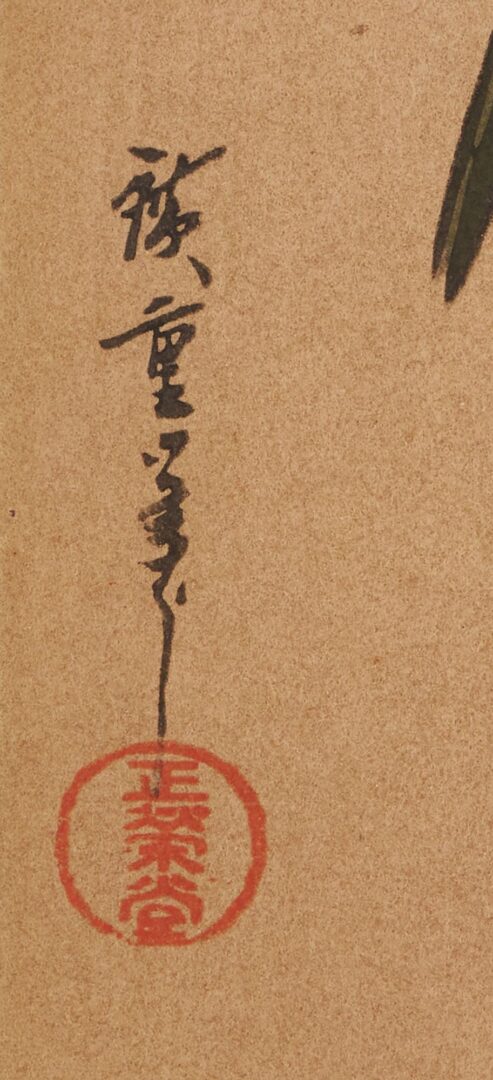 廣重筆
正栄堂